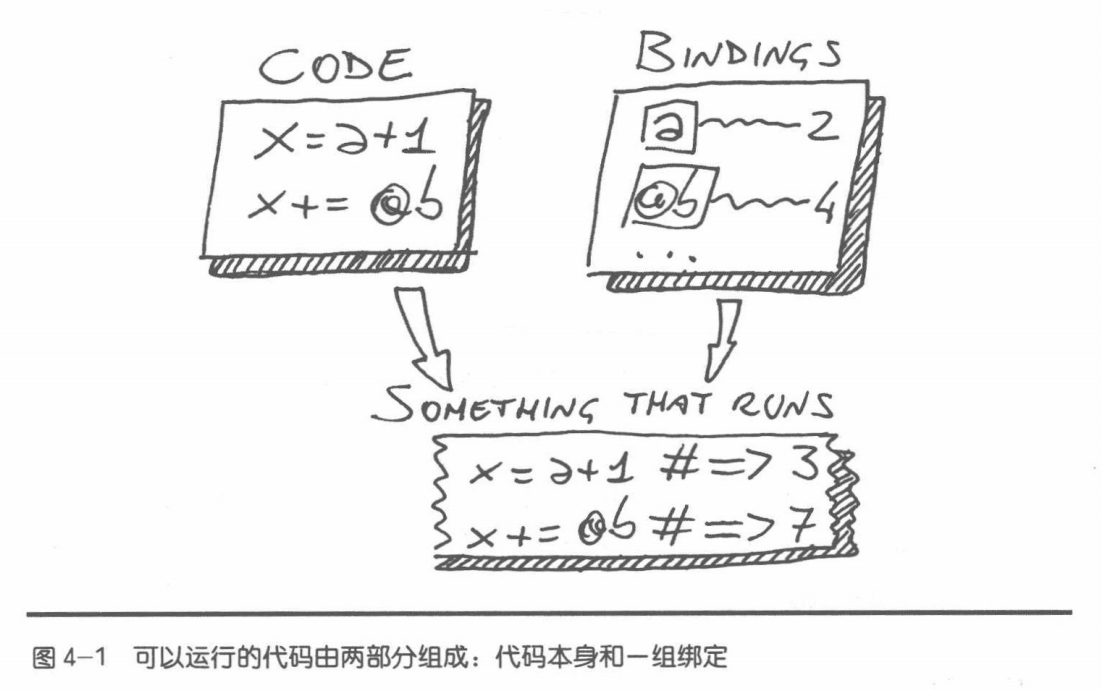 CODE
x=a+1
x+= @b
BINDINGS
a 2
@b 4
...
SOMETHING THAT RUNS
x=a+1 #=> 3
x+= @b #=> 7
图 4-1 可以运行的代码由两部分组成：代码本身和一组绑定